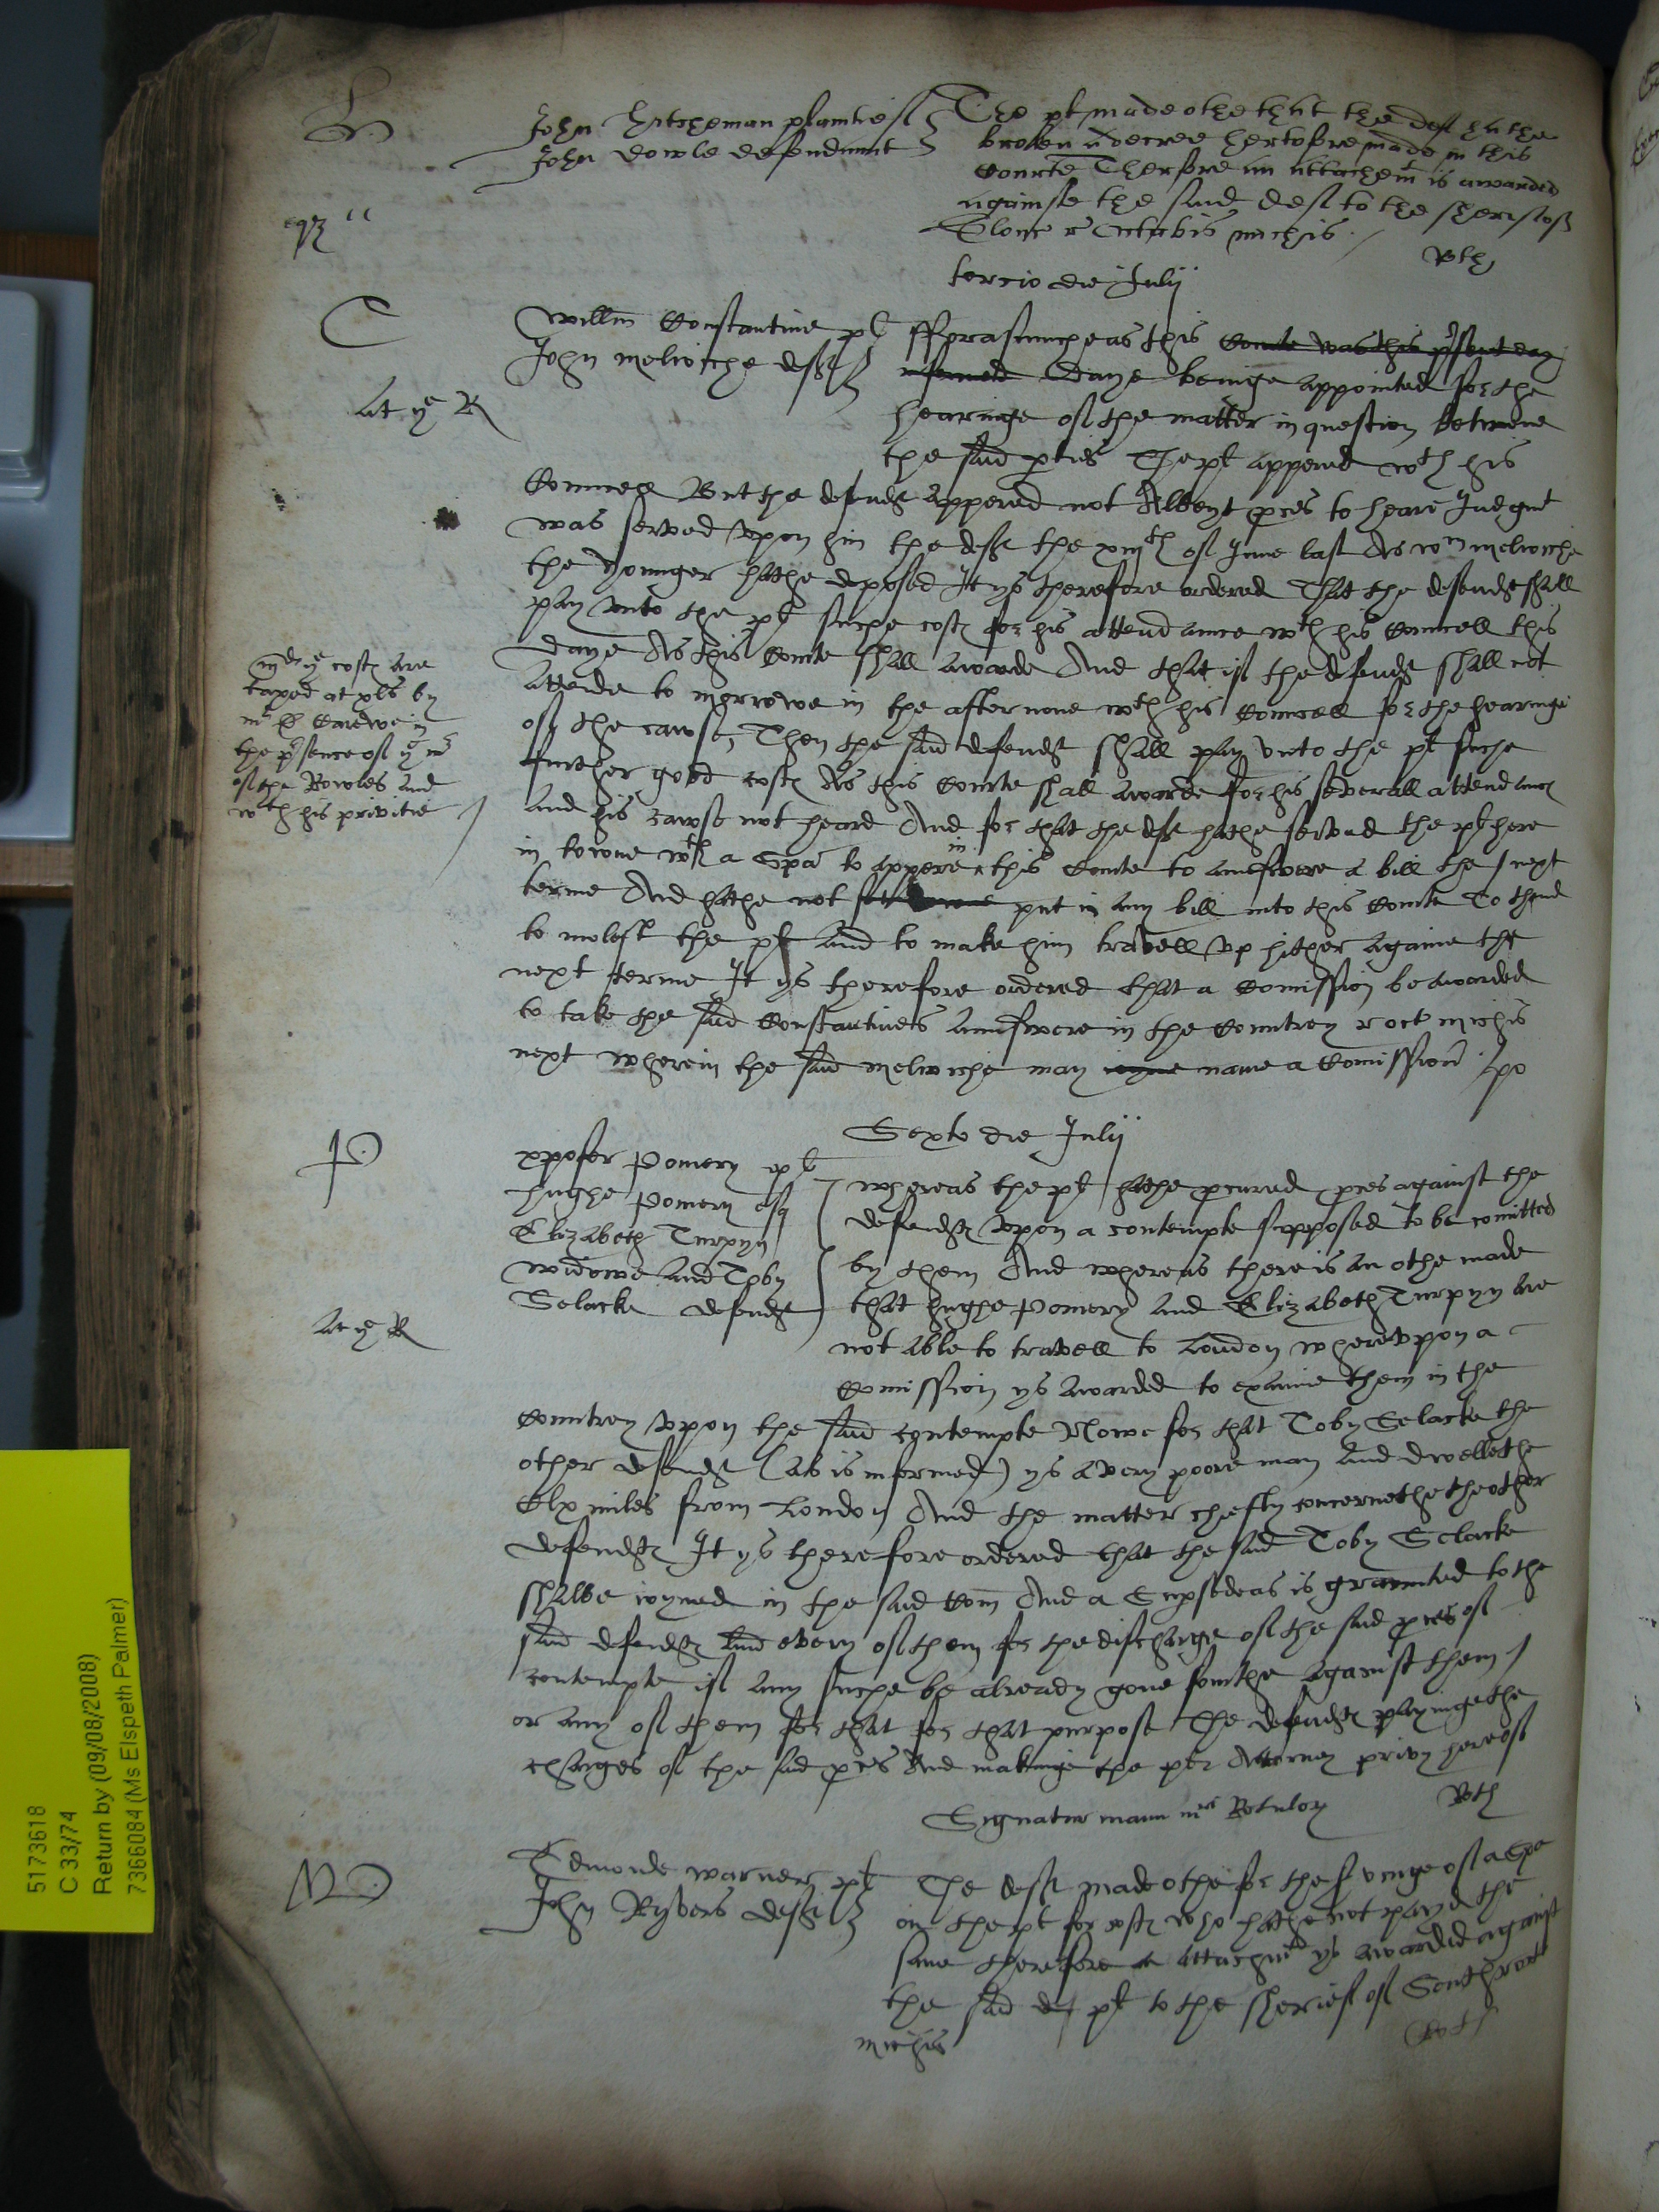 John Hitcheman plaintief
John Dowle defendaunt
The pl made othe that the def hathe
broken a decree hertofore made in this
Courte Therfore an attachemt is awarded
againste the said def to the sherif of
Glouc r Octabis michis
tercio die Julij
C
Willm Constantine pl
John melwiche deft
at ye R
fforasmuche as this Courte was this present day
enformed Daye beinge appointed for the
hearinge of the matter in question betwene
the said pties The pl appered wth his
Councell But the defendt appered not Albeyt pces to heare Judgmt
was served vpon him the deft the xiijth of June last As wm melwiche
the younger hathe deposed It ys therefore ordered That the defendt shall
pay vnto the pl suche costs for his attendaunce wth his Councell this
Daye As this Courte shall awarde And that if the defendt shall not
attende to morrowe in the afternone wth his Councell for the hearinge
of the cawse, Then the said defendt shall pay vnto the pl suche
further good costs As this Courte shall awarde for his severall attendances
and his cawse not heard And for that the deft hathe served the pl here
in towne wth a Spa to appere in this Courte to aunswere a bill the next
terme And hathe not put in any bill into this Courte To thend
to molest the pl and to make him travell vp hither againe the
next terme It ys therefore ordered that a Comission be awarded
to take the said Constantines aunswere in the Countrey r oct michis
next wherein the said melwiche may ioyne name a Comissionr
md ye costs are
taxed at xls by
mr Carewe in
the psence of ye mr
of the Rowles and
wth his privitie
Sexto die Julij
P
xpofer Pomery pl
Hughe Pomery esq
Elizabeth Turpyn
widowe and Toby
Selacke defendts
at ye R
whereas the pl hathe pcured pces against the
defendts vpon a contempte supposed to be comitted
by them And whereas there is an othe made
that hughe Pomery and Elizabeth Turpyn are
not able to travell to London wherevpon a
Comission ys awarded to examine them in the
Countrey vpon the said contempte Nowe for that Toby Selacke the
other defendt (as is informed) ys a very poore man and dwellethe
Clx miles from London And the matter chefly concernethe the other
defendts It ys therefore ordered that the said Toby Selacke
shalbe ioyned in the said Com And a Supsedeas is graunted to the
said defendts and every of them for the discharge of the said pces of
contempte if any suche be already gone fourthe against them
or any of them for that for that purpose The defendts payinge the
charges of the said pces And makinge the plts Attorney privy hereof
Signatur manu mri Rotulor
Edmonde warner pl
John Ryvers deft
The deft made othe for the svinge of a Spa
on the pl for costs who hathe not payd the
same therefore a attachmt ys awarded against
the said def pl to the sherief of Southwark
michis
5173618
C 33/74
Return by (09/08/2008)
7366084 (Ms Elspeth Palmer)